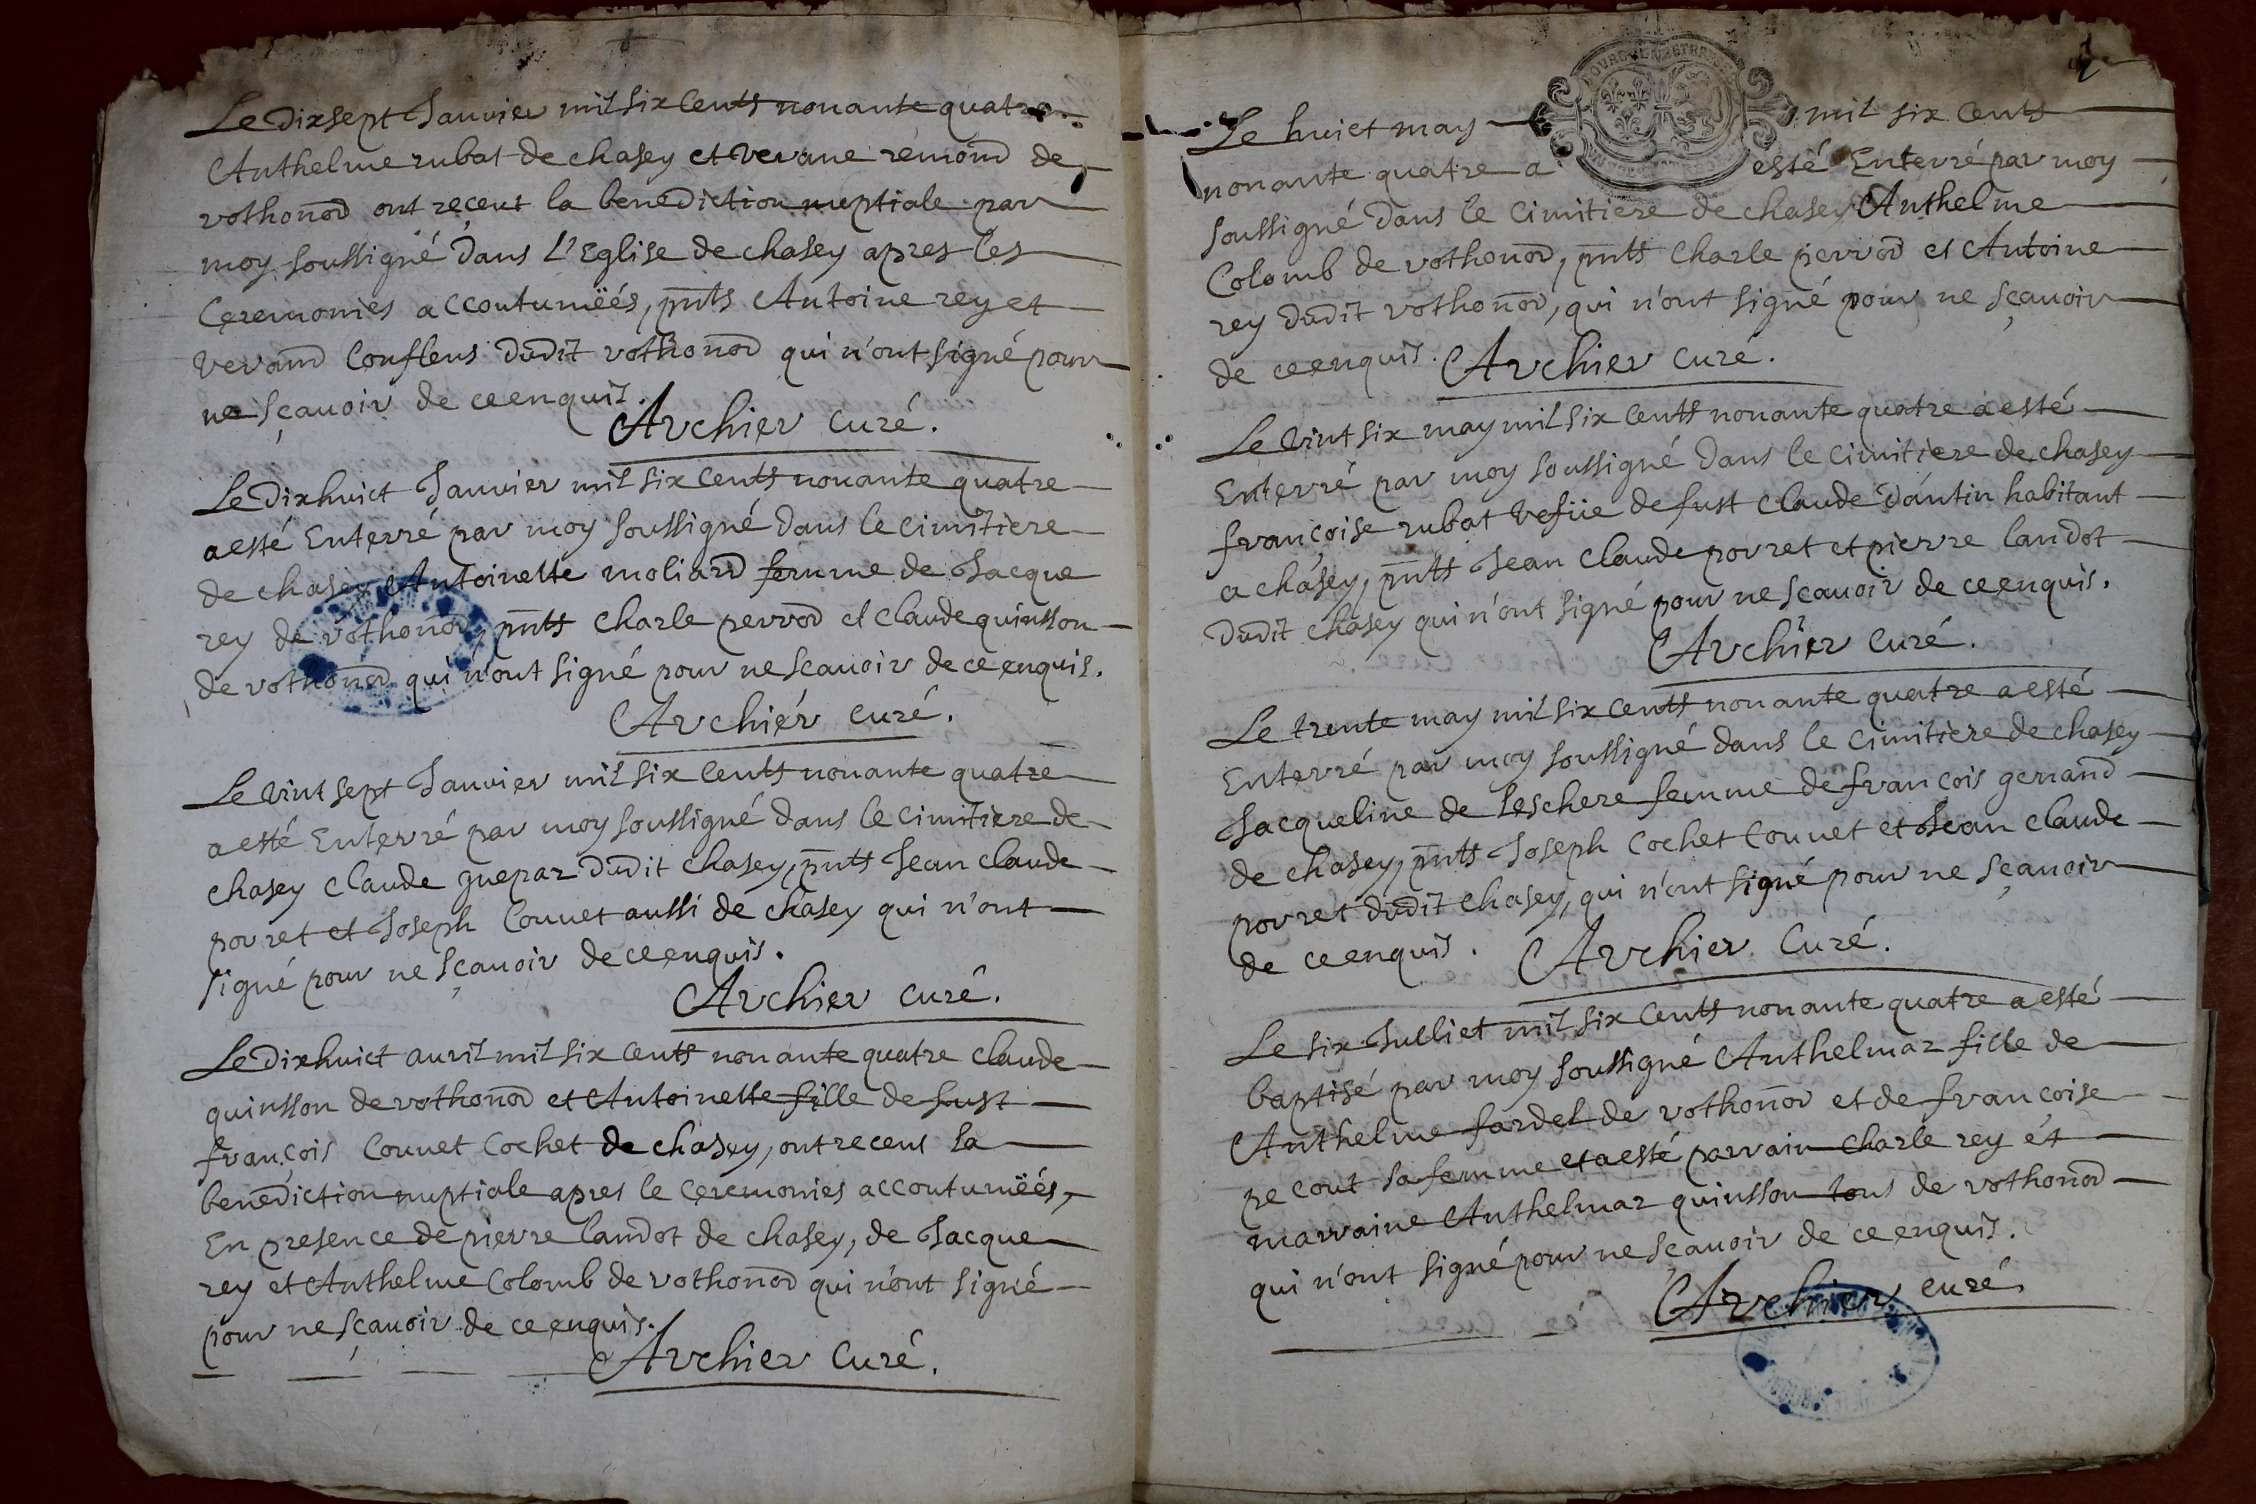 Le dixsept Januier mil six Cents nonante quatre
Anthelme rubat de chasey et verane rémond de
vothonod ont reçeut la benediction nuptiale par
moy soussigné dans L'Eglise de chasey apres les
Çeremonies accoutumëés, pnts Antoine rey et
verand Conflens dudit vothonod qui n'ont signé pour
ne sçauoir de ce enquis.
Archier curé.
Le dixhuict Januier mil six Cents nonante quatre
a esté Enterré par moy soussigné dans le cimitiere
de chasey Antoinette moliard femme de Jacque
rey de vothonod, pnts Charle perrod et claude quinsson
de vothonod qui n'ont signé pour ne scauoir de ce enquis.
Archier curé.
Le vint sept Januier mil six Cents nonante quatre
a esté Enterré par moy soussigné dans le cimitiere de
chasey claude guepar dudit chasey, pnts Jean claude
porret et Joseph Couuet aussi de chasey qui n'ont
signé pour ne sçauoir de ce enquis.
Archier curé.
Le dixhuict auril mil six Cents nonante quatre claude
quinsson de vothonod et Antoinette fille de fust
françois Couuet Cochet de chasey, ont receut la
benediction nuptiale apres le çeremonies accoutumëés,
En presence de pierre landot de chasey, de Jacque
rey et Anthelme Colomb de vothonod qui n'ont signé
pour ne sçauoir de ce enquis.
Archier Curé.
Le huict may mil six Cents
nonante quatre a esté Enterré par moy
soussigné dans le Cimitiere de chasey Anthelme
Colomb de vothonod, pnts Charle perrod et Antoine
rey dudit vothonod, qui n'ont signé pour ne sçauoir
de ce enquis. Archier curé.
Le vint six may mil six Cents nonante quatre a esté
Enterré par moy soussigné dans le cimitiere de chasey
françoise rubat vefüe de fust claude dántin habitant
a chasey, pnts Jean claude porret et pierre landot
dudit chasey qui n'ont signé pour ne scauoir de ce enquis.
Archier curé.
Le trente may mil six Cents nonante quatre a esté
Enterré par moy soussigné dans le cimitiere de chasey
Jacqueline de leschere femme de françois genand
de chasey, pnts Joseph Cochet Couuet et Jean claude
porret dudit chasey, qui n'ont signé pour ne sçauoir
de ce enquis. Archier Curé.
Le six Julliet mil six Cents nonante quatre a esté
baptisé par moy soussigné Anthelmaz fille de
Anthelme fardel de vothonod et de françoise
pecout sa femme et a esté parrain Charle rey ét
marraine Anthelmaz quinsson tous de vothonod
qui n'ont signé pour ne sçauoir de ce enquis.
Archier curé